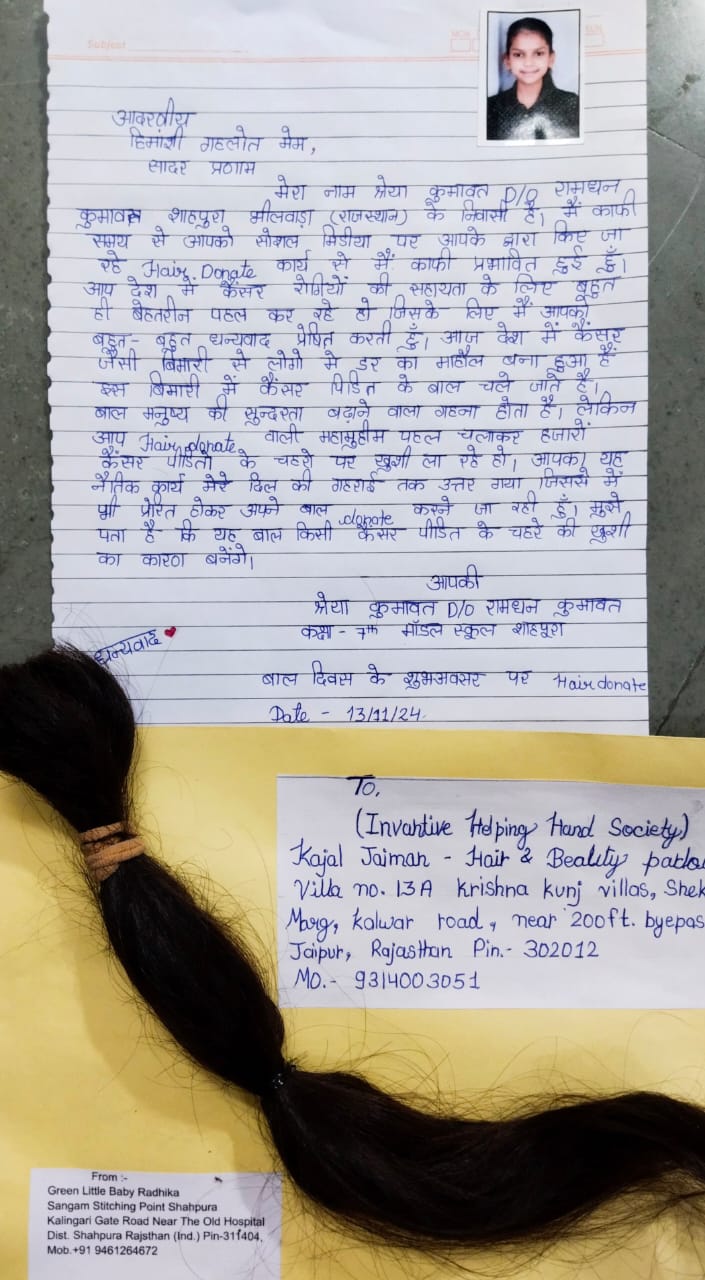 Subject
MON
SUN
आदरणीय
हिमांशी गहलोत मेम,
सादर प्रणाम
मेरा नाम श्रेया कुमावत D/O रामधन
कुमावत शाहपुरा भीलवाड़ा (राजस्थान) के निवासी है, मैं काफी
समय से आपको सोशल मिडीया पर आपके द्वारा किए जा
रहे Hair Donate कार्य से मैं काफी प्रभावित हुई हूँ।
आप देश में कैंसर रोगियों की सहायता के लिए बहुत
ही बेहतरीन पहल कर रहे हो जिसके लिए मैं आपको
बहुत-बहुत धन्यवाद प्रेषित करती हूँ। आज देश में कैंसर
जैसी बिमारी से लोगो मे डर का माहौल बना हुआ हैं
इस बिमारी में कैंसर पिडित के बाल चले जाते है।
बाल मनुष्य की सुन्दरता बढ़ाने वाला गहना होता है। लेकिन
आप Hair donate वाली महामुहीम पहल चलाकर हजारों
कैंसर पीडितो के चहरो पर खुशी ला रहे हो। आपका यह
नैतिक कार्य मेरे दिल की गहराई तक उत्तर गया जिससे में
भी प्रेरित होकर अपने बाल donate करने जा रही हूँ। मुझे
पता है कि यह बाल किसी कैंसर पीडित के चहरे की खुशी
का कारण बनेंगे।
आपकी
श्रेया कुमावत D/O रामधन कुमावत
कक्षा - 7th मॉडल स्कूल शाहपुरा
धन्यवाद
बाल दिवस के शुभअवसर पर Hair donate
Date - 13/11/24.
To,
(Invantive Helping Hand Society)
Kajal Jaiman - Hair & Beality
Villa no. 13A Krishna Kunj villas,
Marg, Kalwar road, near 200ft. byepas
Jaipur, Rajasthan Pin.- 302012
MO.- 9314003051
From :-
Green Little Baby Radhika
Sangam Stitching Point Shahpura
Kalingari Gate Road Near The Old Hospital
Dist. Shahpura Rajsthan (Ind.) Pin-311404,
Mob.+91 9461264672